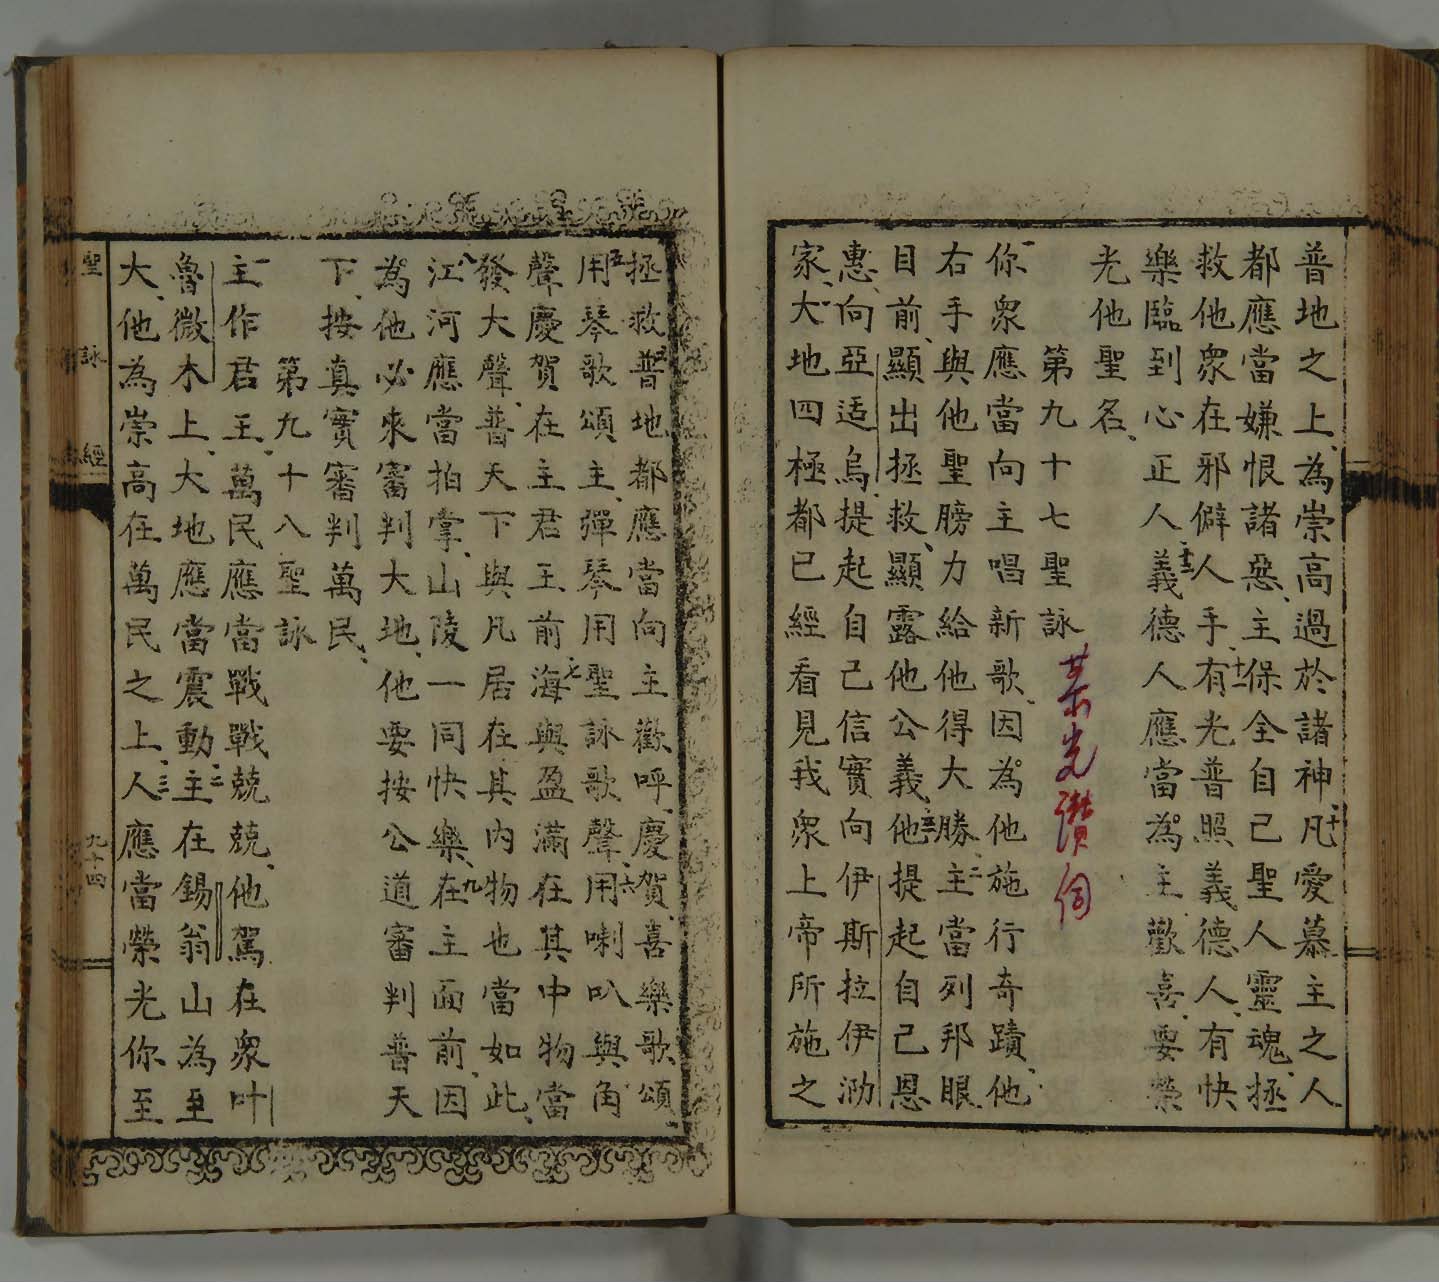 普地之上、為崇高過於諸神、十凡愛慕主之人
都應當嫌恨諸惡、主保全自己聖人靈魂、拯
救他衆在邪僻人手、十一有光普照義德人、有快
樂臨到心正人、十二義德人應當為主歡喜、要榮
光他聖名、
第九十七聖詠
榮光讚
一你衆應當向主唱新歌、因為他施行奇蹟、他
右手與他聖膀力給他得大勝、二主當列邦眼
目前、顯出拯救、顯露他公義、三他提起自己恩
惠、向亞适烏、提起自己信實向伊斯拉伊泐
家、大地四極都已經看見我衆上帝所施之
拯救、四普地都應當向主歡呼、慶賀喜樂歌頌、
五用琴歌頌主、彈琴用聖詠歌聲、六用喇叭與角
聲慶賀在主君王前、七海與盈滿在其中物當
發大聲、普天下與凡居在其內物也當如此、
八江河應當拍掌、山陵一同快樂、九在主面前、因
為他必來審判大地、他要按公道審判普天
下、按真實審判萬民、
第九十八聖詠
一主作君王、萬民應當戰戰兢兢、他駕在衆叶
魯微木上、大地應當震動、二主在錫翁山為至
大、他為崇高在萬民之上、三人應當榮光你至
聖詠經
九十四